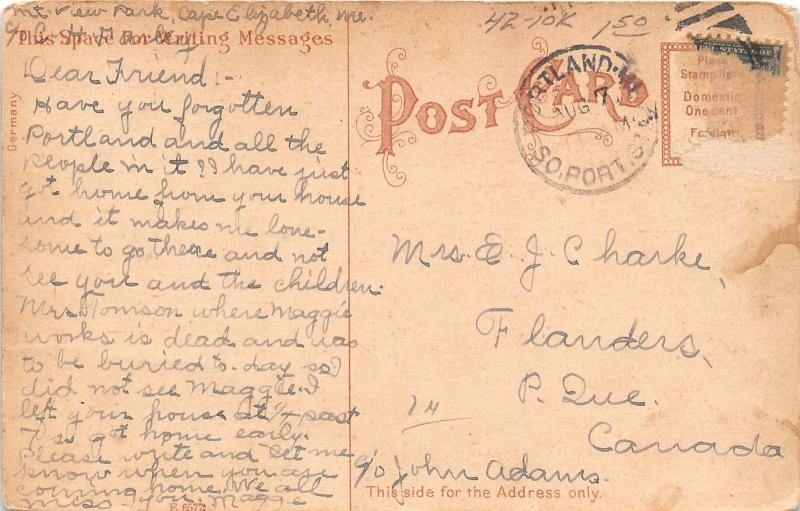 Mt. View Park, Cape Elizabeth, Me.
This Space For Writing Messages
Dear Friend:-
Have you forgotten
Portland and all the
People in it? I have just
got home from your house
and it makes me lone-
some to go there and not
see you and the children.
Mrs. Tomson where Maggie
works is dead and was
to be buried to-day so I
did not see Maggie. I
left your house at ½ past
7 so got home early.
Please write and let me
know when you are
coming home. We all
miss you. Maggie
Germany
E 6577
42-10K 1 50
POST CARD
PORTLAND, ME.
AUG 4
SO. PORT. STA.
Place
Stamp Here
Domestic
One cent
Foreign
Mrs. E. J. Charke,
Flanders,
P. Que.
14
Canada
c/o John Adams.
This side for the Address only.